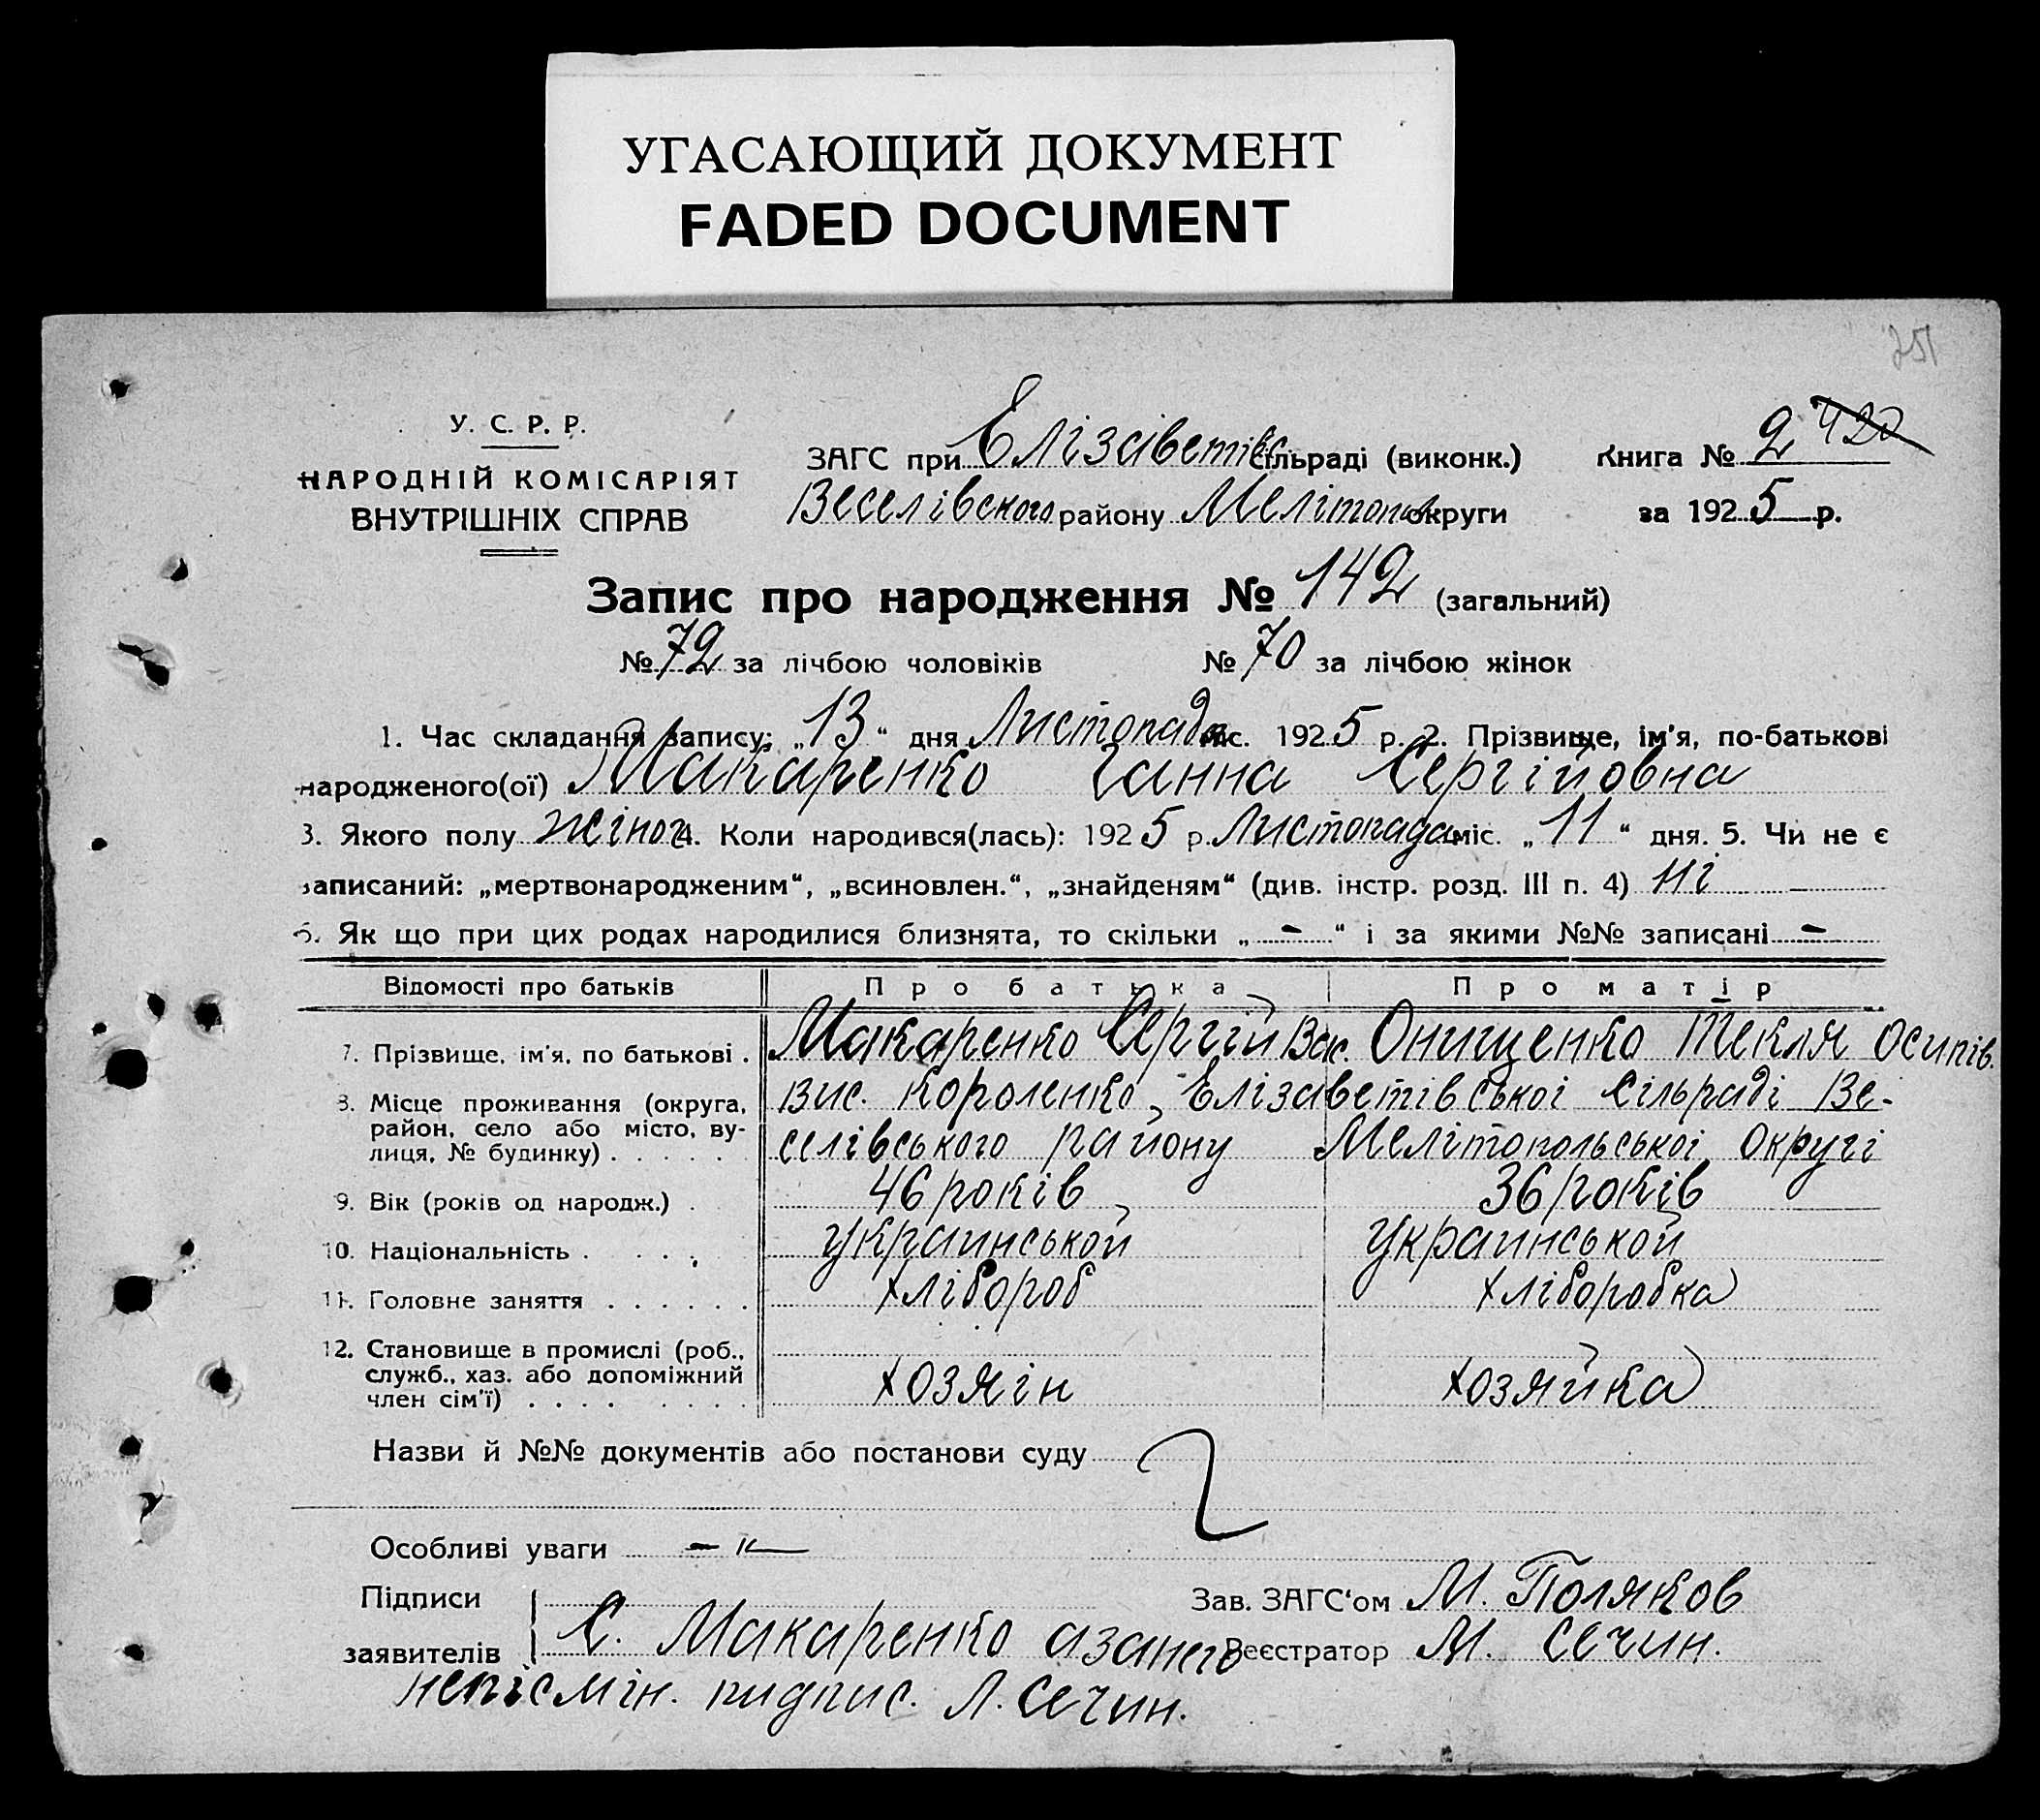 УГАСАЮЩИЙ ДОКУМЕНТ
FADED DOCUMENT
251
У. С. Р. Р.
НАРОДНІЙ КОМІСАРІЯТ
ВНУТРІШНІХ СПРАВ
ЗАГС при Елізаветівс. сільраді (виконк.) Книга № 2 420
Веселівского району Мелітопол округи за 1925 р.
Запис про народження № 142 (загальний)
№ 72 за лічбою чоловіків № 70 за лічбою жінок
1. Час складання запису: „13“ дня Листопада міс. 1925 р. 2. Прізвище, ім'я, по-батькові
народженого(ої) Макаренко Ганна Сергійовна
3. Якого полу жіноч 4. Коли народився(лась): 1925 р. Листопада міс. „11“ дня. 5. Чи не є
записаний: „мертвонародженим“, „всиновлен.“, „знайденям“ (див. інстр. розд. III п. 4) ні
6. Як що при цих родах народилися близнята, то скільки „-“ і за якими №№ записані -
Відомості про батьків Про батька Про матір
7. Прізвище, ім'я, по батькові . Макаренко Сергій Вас. Онищенко Текля Осипів.
8. Місце проживання (округа, вис. Короленко, Елізаветівської сільраді Ве-
район, село або місто, ву- селівського району Мелітопольської округі
лиця, № будинку) . . . . .
9. Вік (років од народж.) . 46 років 36 років
10. Національність . . . . . украинськой украинськой
11. Головне заняття . . . . . . хлібороб хліборобка
12. Становище в промислі (роб.,
служб., хаз. або допоміжний хозяін хозяйка
член сім'ї) . . . . . . . .
Назви й №№ документів або постанови суду
Особливі уваги - " -
Підписи Зав. ЗАГС'ом М. Поляков
заявителів С. Макаренко азанего Реєстратор М. Сечин.
неписмін. пидпис. Л. Сечин.